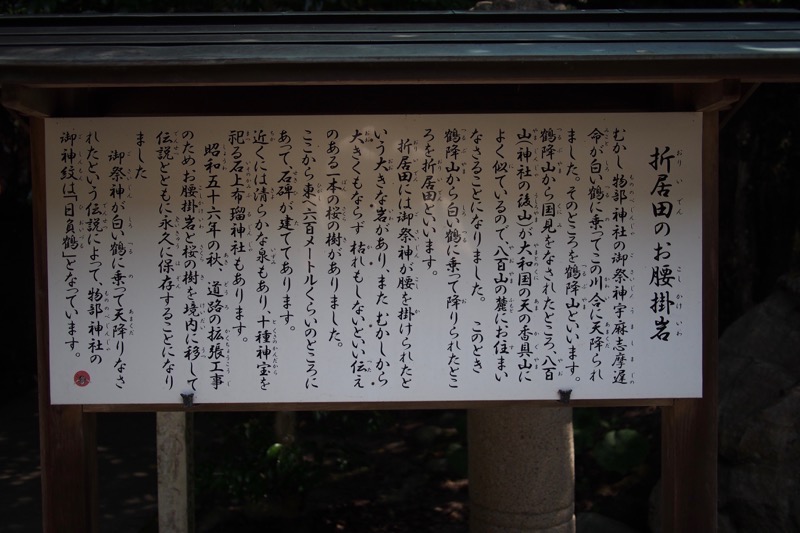 折居田のお腰掛岩
むかし 物部神社の御祭神宇麻志摩遅
命が白い鶴に乗ってこの川合に天降られ
ました。そのところを鶴降山といいます。
鶴降山から国見をなされたところ、八百
山(神社の後山)が大和国の天の香具山に
よく似ているので、八百山の麓にお住まい
なさることになりました。このとき
鶴降山から白い鶴に乗って降りられたとこ
ろを折居田といいます。
折居田には御祭神が腰を掛けられたと
いう大きな岩があり、また むかしから
大きくもならず 枯れもしないといい伝え
のある一本の桜の樹がありました。
ここから東へ六百メートルくらいのところに
あって、石碑が建ててあります。
近くには清らかな泉もあり、十種神宝を
祀る石上布瑠神社もあります。
昭和五十六年の秋、道路の拡張工事
のため お腰掛岩と桜の樹を境内に移して
伝説とともに永久に保存することになり
ました
御祭神が白い鶴に乗って天降りなさ
れたという伝説によって、物部神社の
御神紋は「日負鶴」となっています。